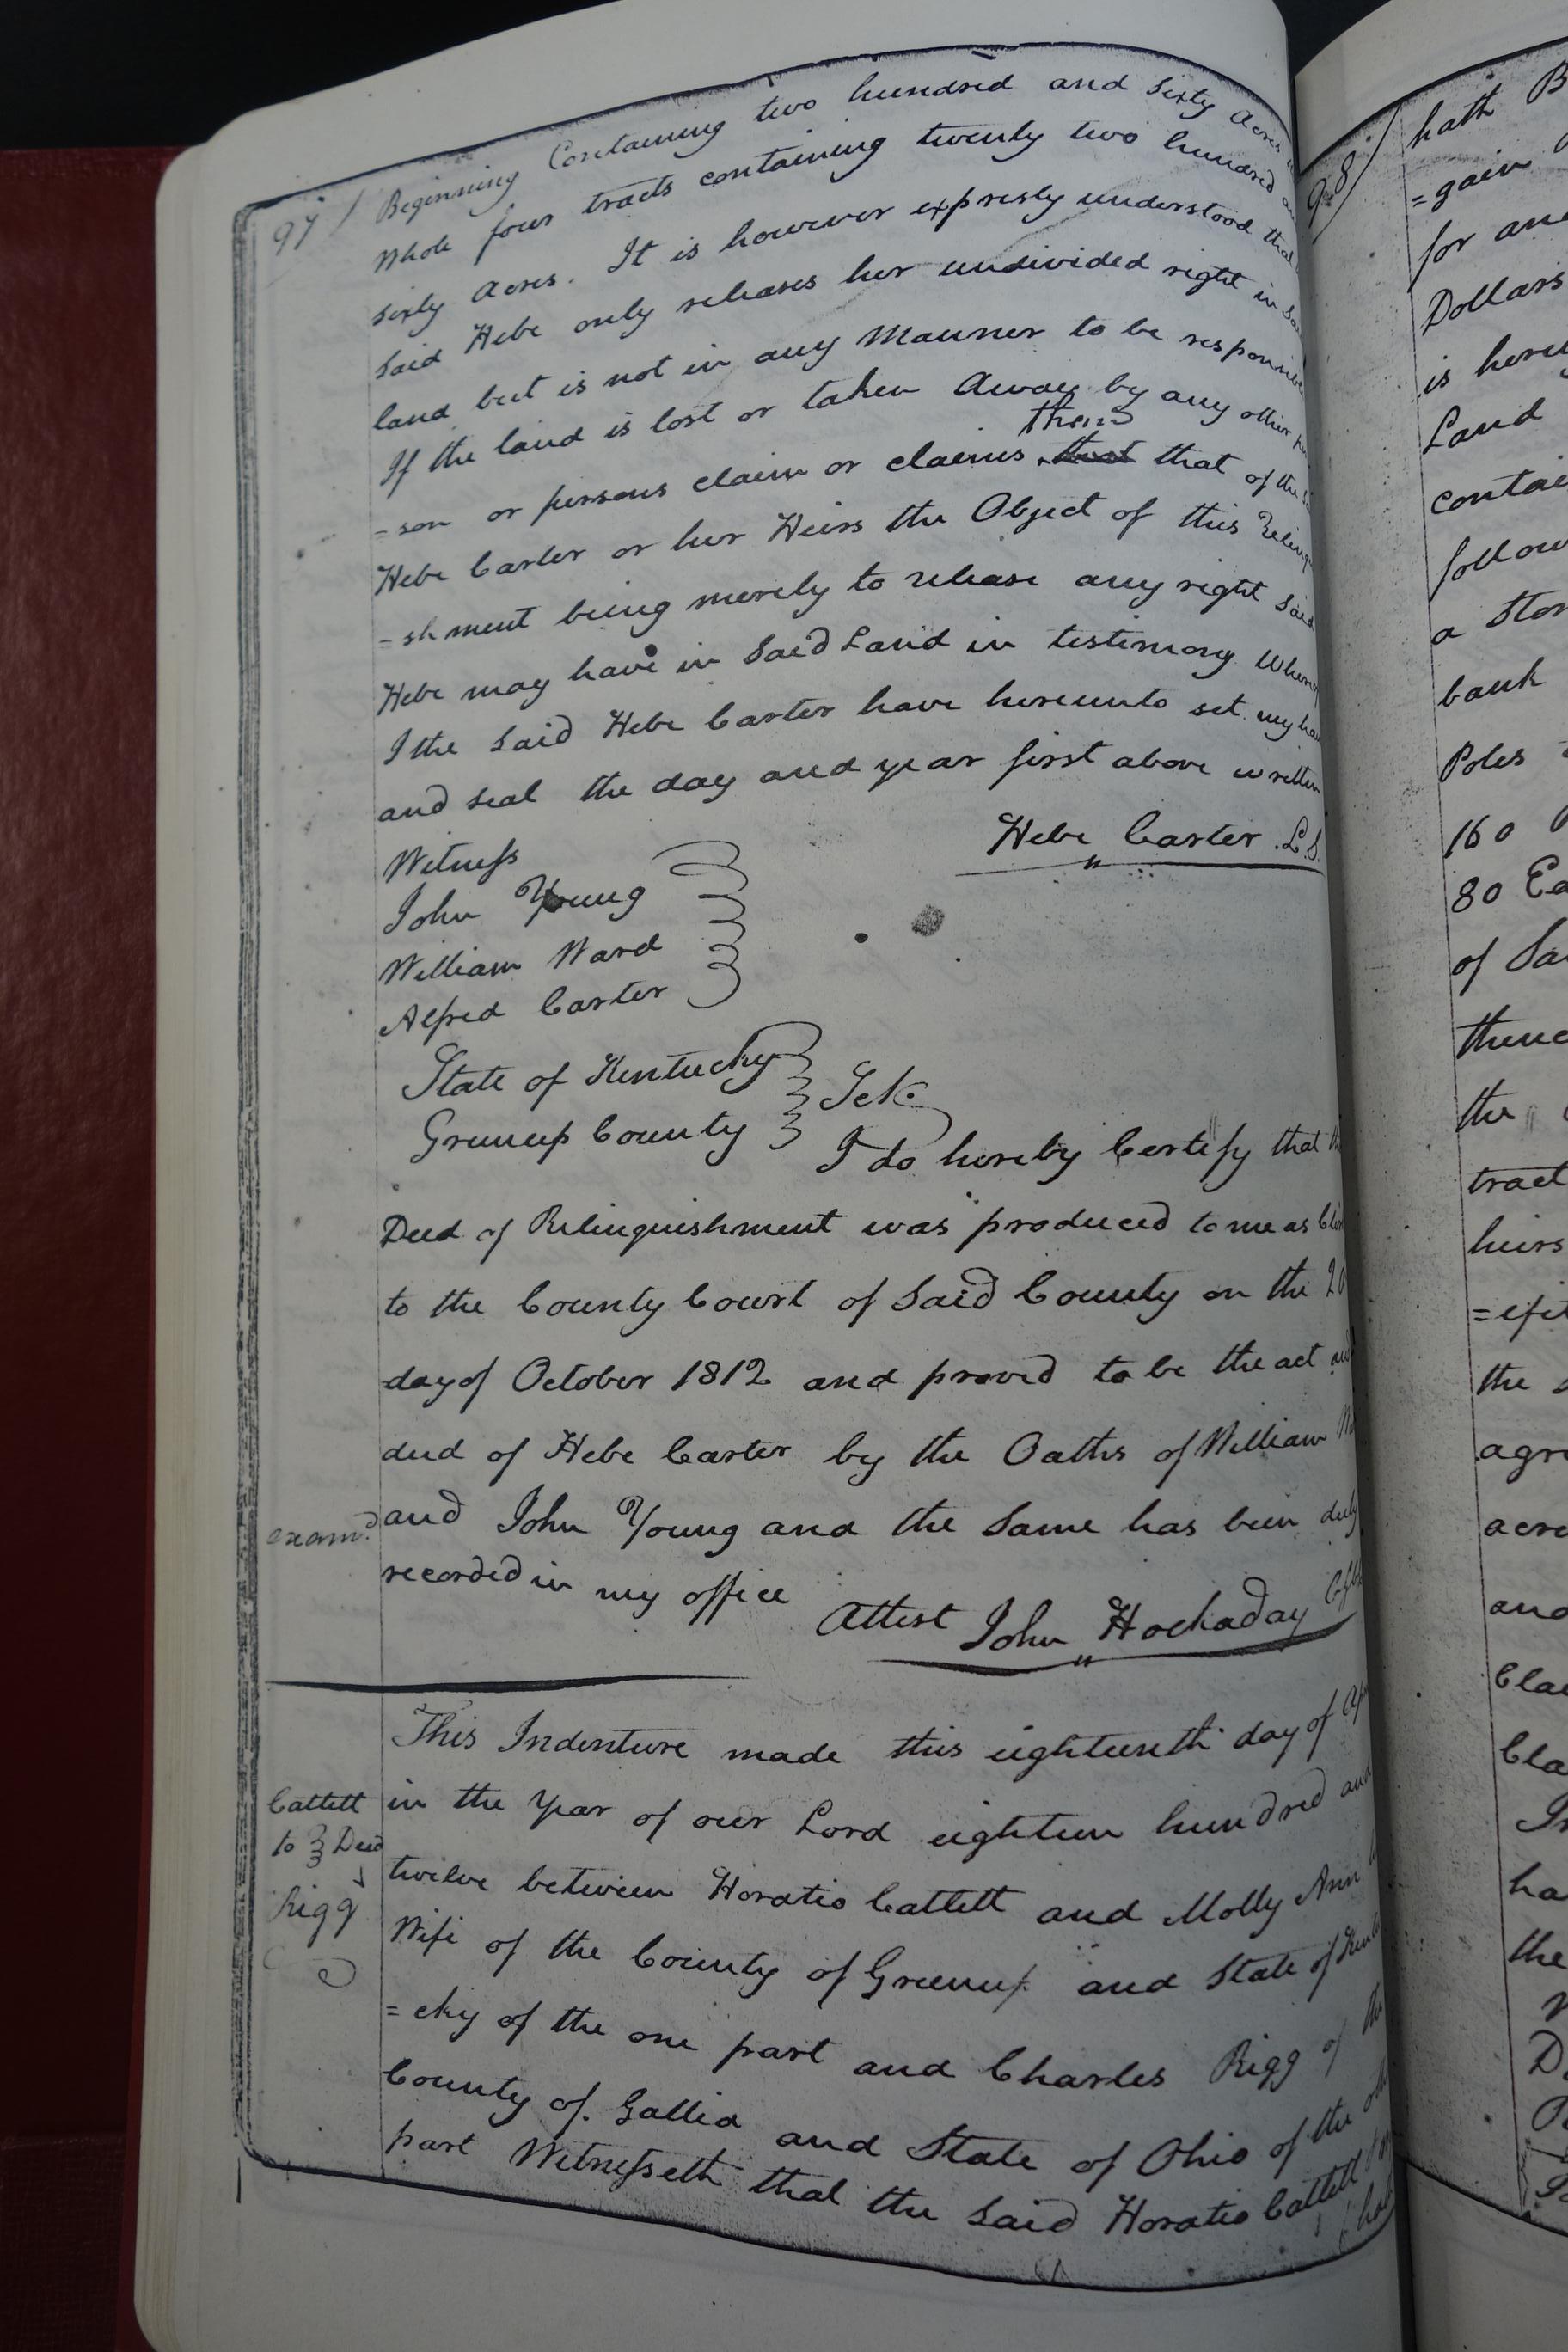 97/
Beginning Containing two hundred and Sixty Acres
Whole four tracts containing twenty two hundred
Sixty Acres. It is however expresly understood that
Said Hebe only releases her undivided right in
land but is not in any Manner to be responsible
If the land is lost or taken Away by any other
then
=son or persons claim or claims that that of the
Hebe Carter or her Heirs the Object of this Relinqu
=shment being merely to release any right Said
Hebe may have in Said Land in testimony
I the Said Hebe Carter have hereunto set my
and seal the day and year first above written
Hebe Carter L.S.
Witness
John Young
William Ward
Alfred Carter
State of Kentucky
Greenup County
I do hereby Certify that
Deed of Relinquishment was produced to me as
to the County Court of Said County on the 20
day of October 1812 and proved to be the act
deed of Hebe Carter by the Oaths of William
examd.
and John Young and the Same has been duly
recorded in my office
Attest John Hockaday
This Indenture made this eighteenth day of
in the Year of our Lord eighteen hundred and
Catlett
to Deed
Rigg
twelve between Horatio Catlett and Molly Ann
Wife of the County of Greenup and State of
=cky of the one part and Charles Rigg of the
County of Gallia and State of Ohio of the
part Witnesseth that the Said Horatio Catlett
98/
hath
=gain
for
Dollars
is
Land
a
bank
Poles
160
80
of
the
tract
heirs
the